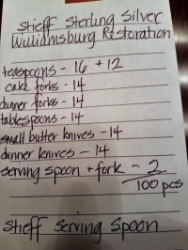 Stieff Sterling Silver
Williamsburg Restoration
teaspoons - 16 + 12
cake forks - 14
dinner forks - 14
tablespoons - 14
small butter knives - 14
dinner knives - 14
serving spoon + fork - 2
100 pcs
Stieff Serving Spoon